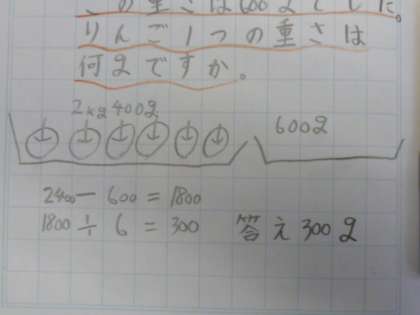 この重さは600gでした。
りんご1つの重さは
何gですか。
2kg400g
600g
2400-600=1800
1800÷6=300 答え300g